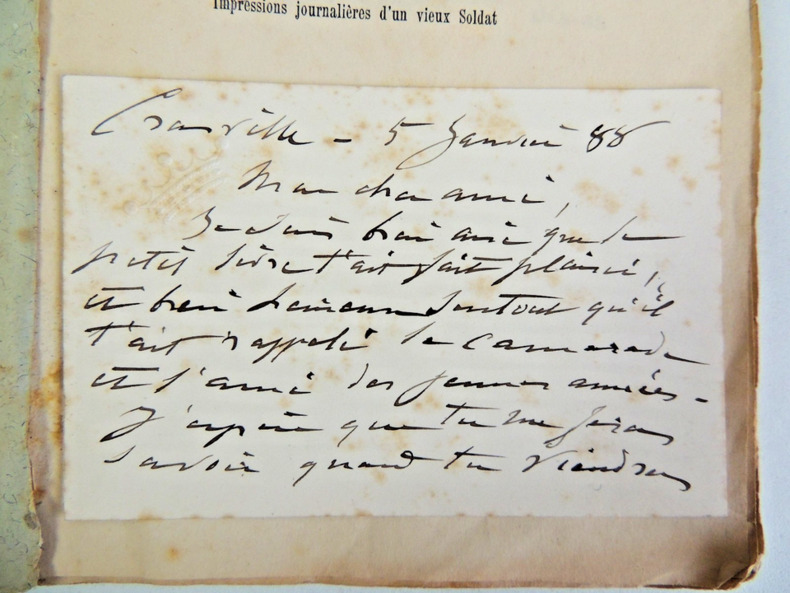 Impressions journalières d'un vieux Soldat
Granville - 5 Janvier 88
Mon cher ami,
Je suis bien aise que le
petit livre t'ait fait plaisir,
et bien heureux surtout qu'il
t'ait rappelé le camarade
et l'ami des jeunes années -
J'espère que tu me feras
savoir quand tu viendras